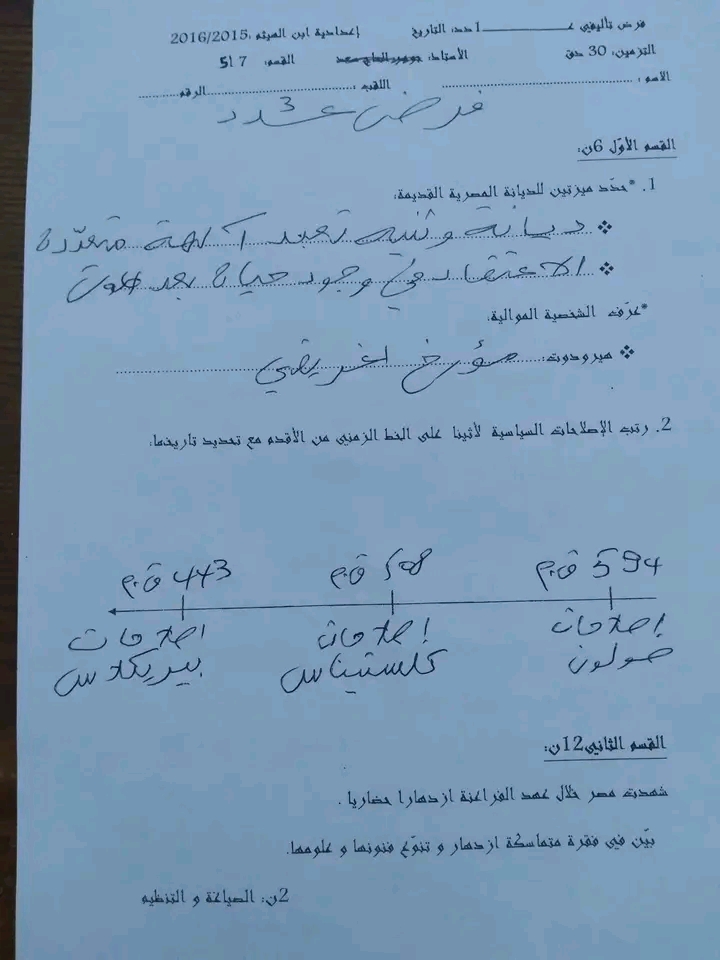 فرض تأليفي عـــــــــدد1، التاريخ إعدادية ابن الهيثم ،2016/2015
التزمين: 30 دق الأستاذ: القسم: 7 أ5
الاسم : .......................... اللقب : ..........................الرقم..........
فرض عدد 3
القسم الأوّل 6ن:
1. *حدّد ميزتين للديانة المصرية القديمة:
❖ ديانة وثنية تعبد آلهة متعددة
❖ الاعتقاد في وجود حياة بعد الموت
*عرّف الشخصية الموالية:
❖ هيرودوت: مؤرخ اغريقي
2. رتب الإصلاحات السياسية لأثينا على الخط الزمني من الأقدم مع تحديد تاريخها:
594 ق.م 508 ق.م 443 ق.م
إصلاحات إصلاحات اصلاحات
صولون كلستيناس بيريكلاس
القسم الثاني12ن:
شهدت مصر خلال عهد الفراعنة ازدهارا حضاريا .
بيّن في فقرة متماسكة ازدهار و تنوّع فنونها و علومها.
2ن: الصياغة و التنظيم